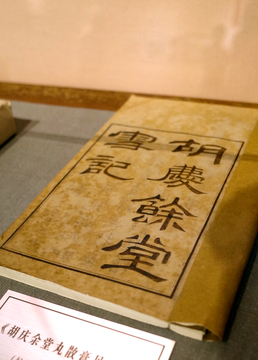 胡慶餘堂
雪記
《胡庆余堂丸散膏